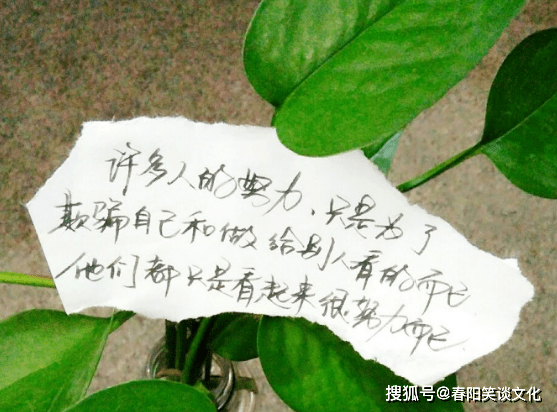 许多人的努力,只是为了
欺骗自己和做给别人看的而已
他们都只是看起来很努力而已
搜狐号@春阳笑谈文化